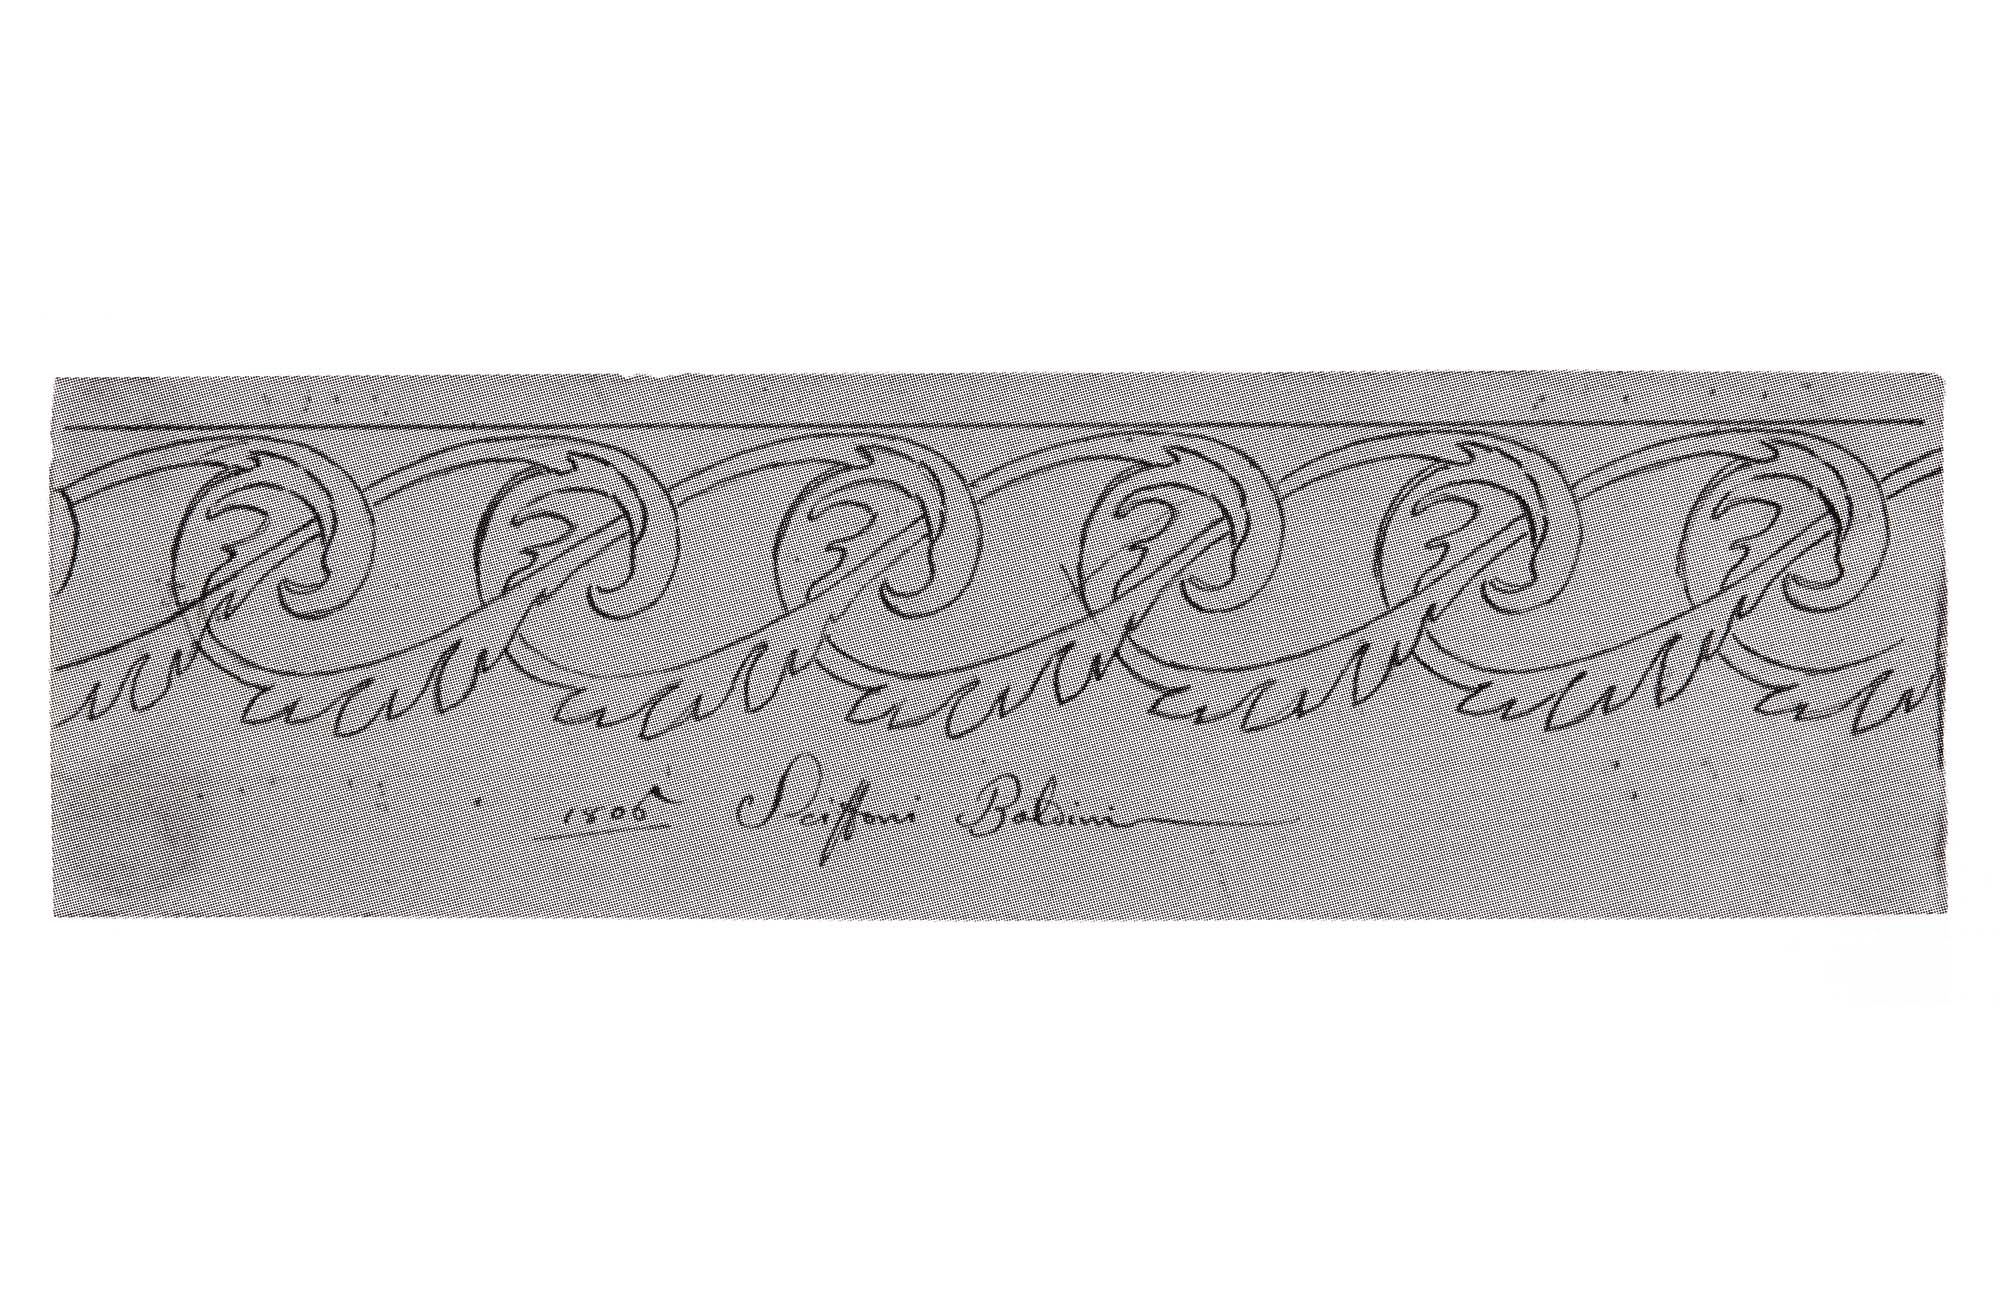 1806 Sciffoni Baldini